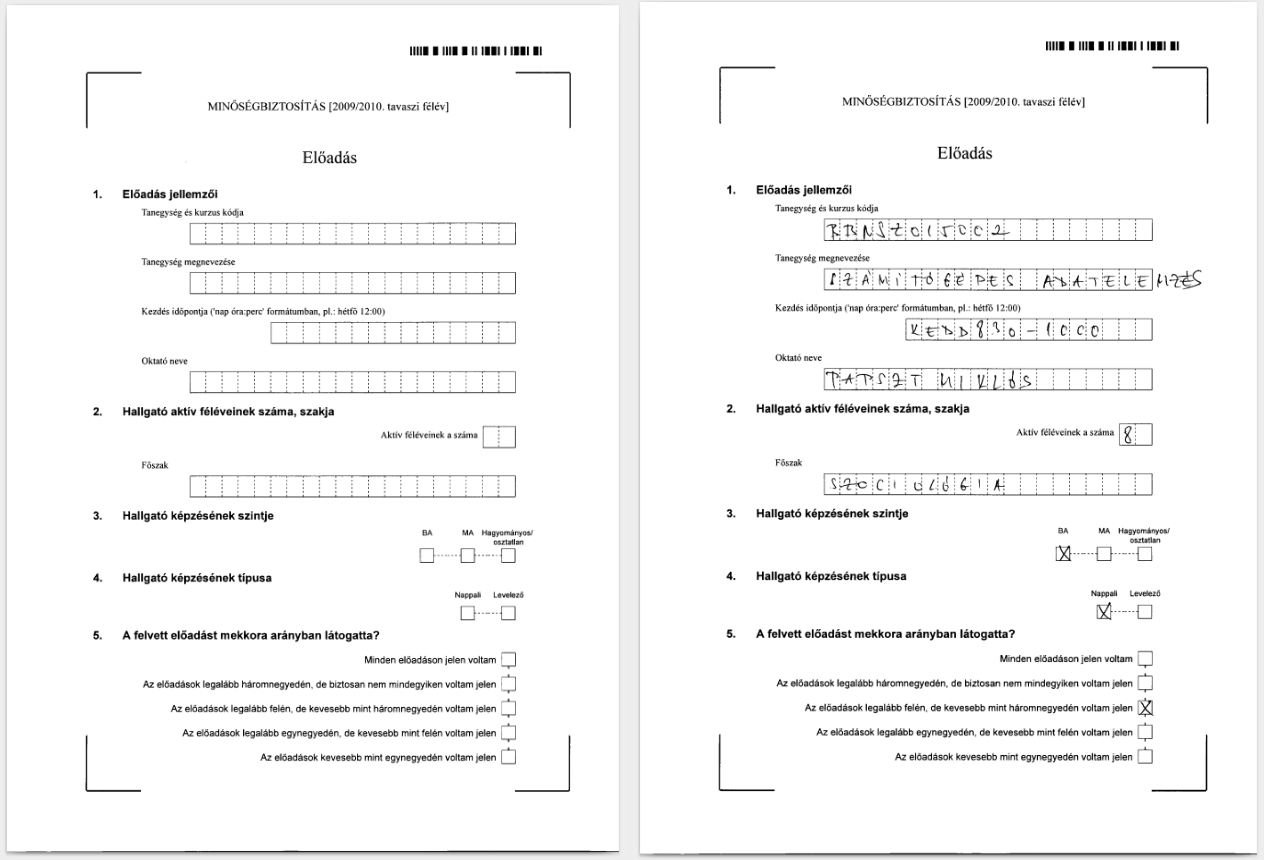 MINŐSÉGBIZTOSÍTÁS [2009/2010. tavaszi félév]
Előadás
1. Előadás jellemzői
Tanegység és kurzus kódja
Tanegység megnevezése
Kezdés időpontja ('nap óra:perc' formátumban, pl.: hétfő 12:00)
Oktató neve
2. Hallgató aktív féléveinek száma, szakja
Aktív féléveinek a száma
Főszak
3. Hallgató képzésének szintje
BA MA Hagyományos/
osztatlan
4. Hallgató képzésének típusa
Nappali Levelező
5. A felvett előadást mekkora arányban látogatta?
Minden előadáson jelen voltam
Az előadások legalább háromnegyedén, de biztosan nem mindegyiken voltam jelen
Az előadások legalább felén, de kevesebb mint háromnegyedén voltam jelen
Az előadások legalább egynegyedén, de kevesebb mint felén voltam jelen
Az előadások kevesebb mint egynegyedén voltam jelen
MINŐSÉGBIZTOSÍTÁS [2009/2010. tavaszi félév]
Előadás
1. Előadás jellemzői
Tanegység és kurzus kódja
Tanegység megnevezése
SZÁMITÓGÉPES ADATELEMZÉS
Kezdés időpontja ('nap óra:perc' formátumban, pl.: hétfő 12:00)
KEDD830-1000
Oktató neve
PAPSZT MIKLÓS
2. Hallgató aktív féléveinek száma, szakja
Aktív féléveinek a száma 8
Főszak
SZOCIOLÓGIA
3. Hallgató képzésének szintje
BA MA Hagyományos/
osztatlan
X
4. Hallgató képzésének típusa
Nappali Levelező
X
5. A felvett előadást mekkora arányban látogatta?
Minden előadáson jelen voltam
Az előadások legalább háromnegyedén, de biztosan nem mindegyiken voltam jelen
Az előadások legalább felén, de kevesebb mint háromnegyedén voltam jelen X
Az előadások legalább egynegyedén, de kevesebb mint felén voltam jelen
Az előadások kevesebb mint egynegyedén voltam jelen